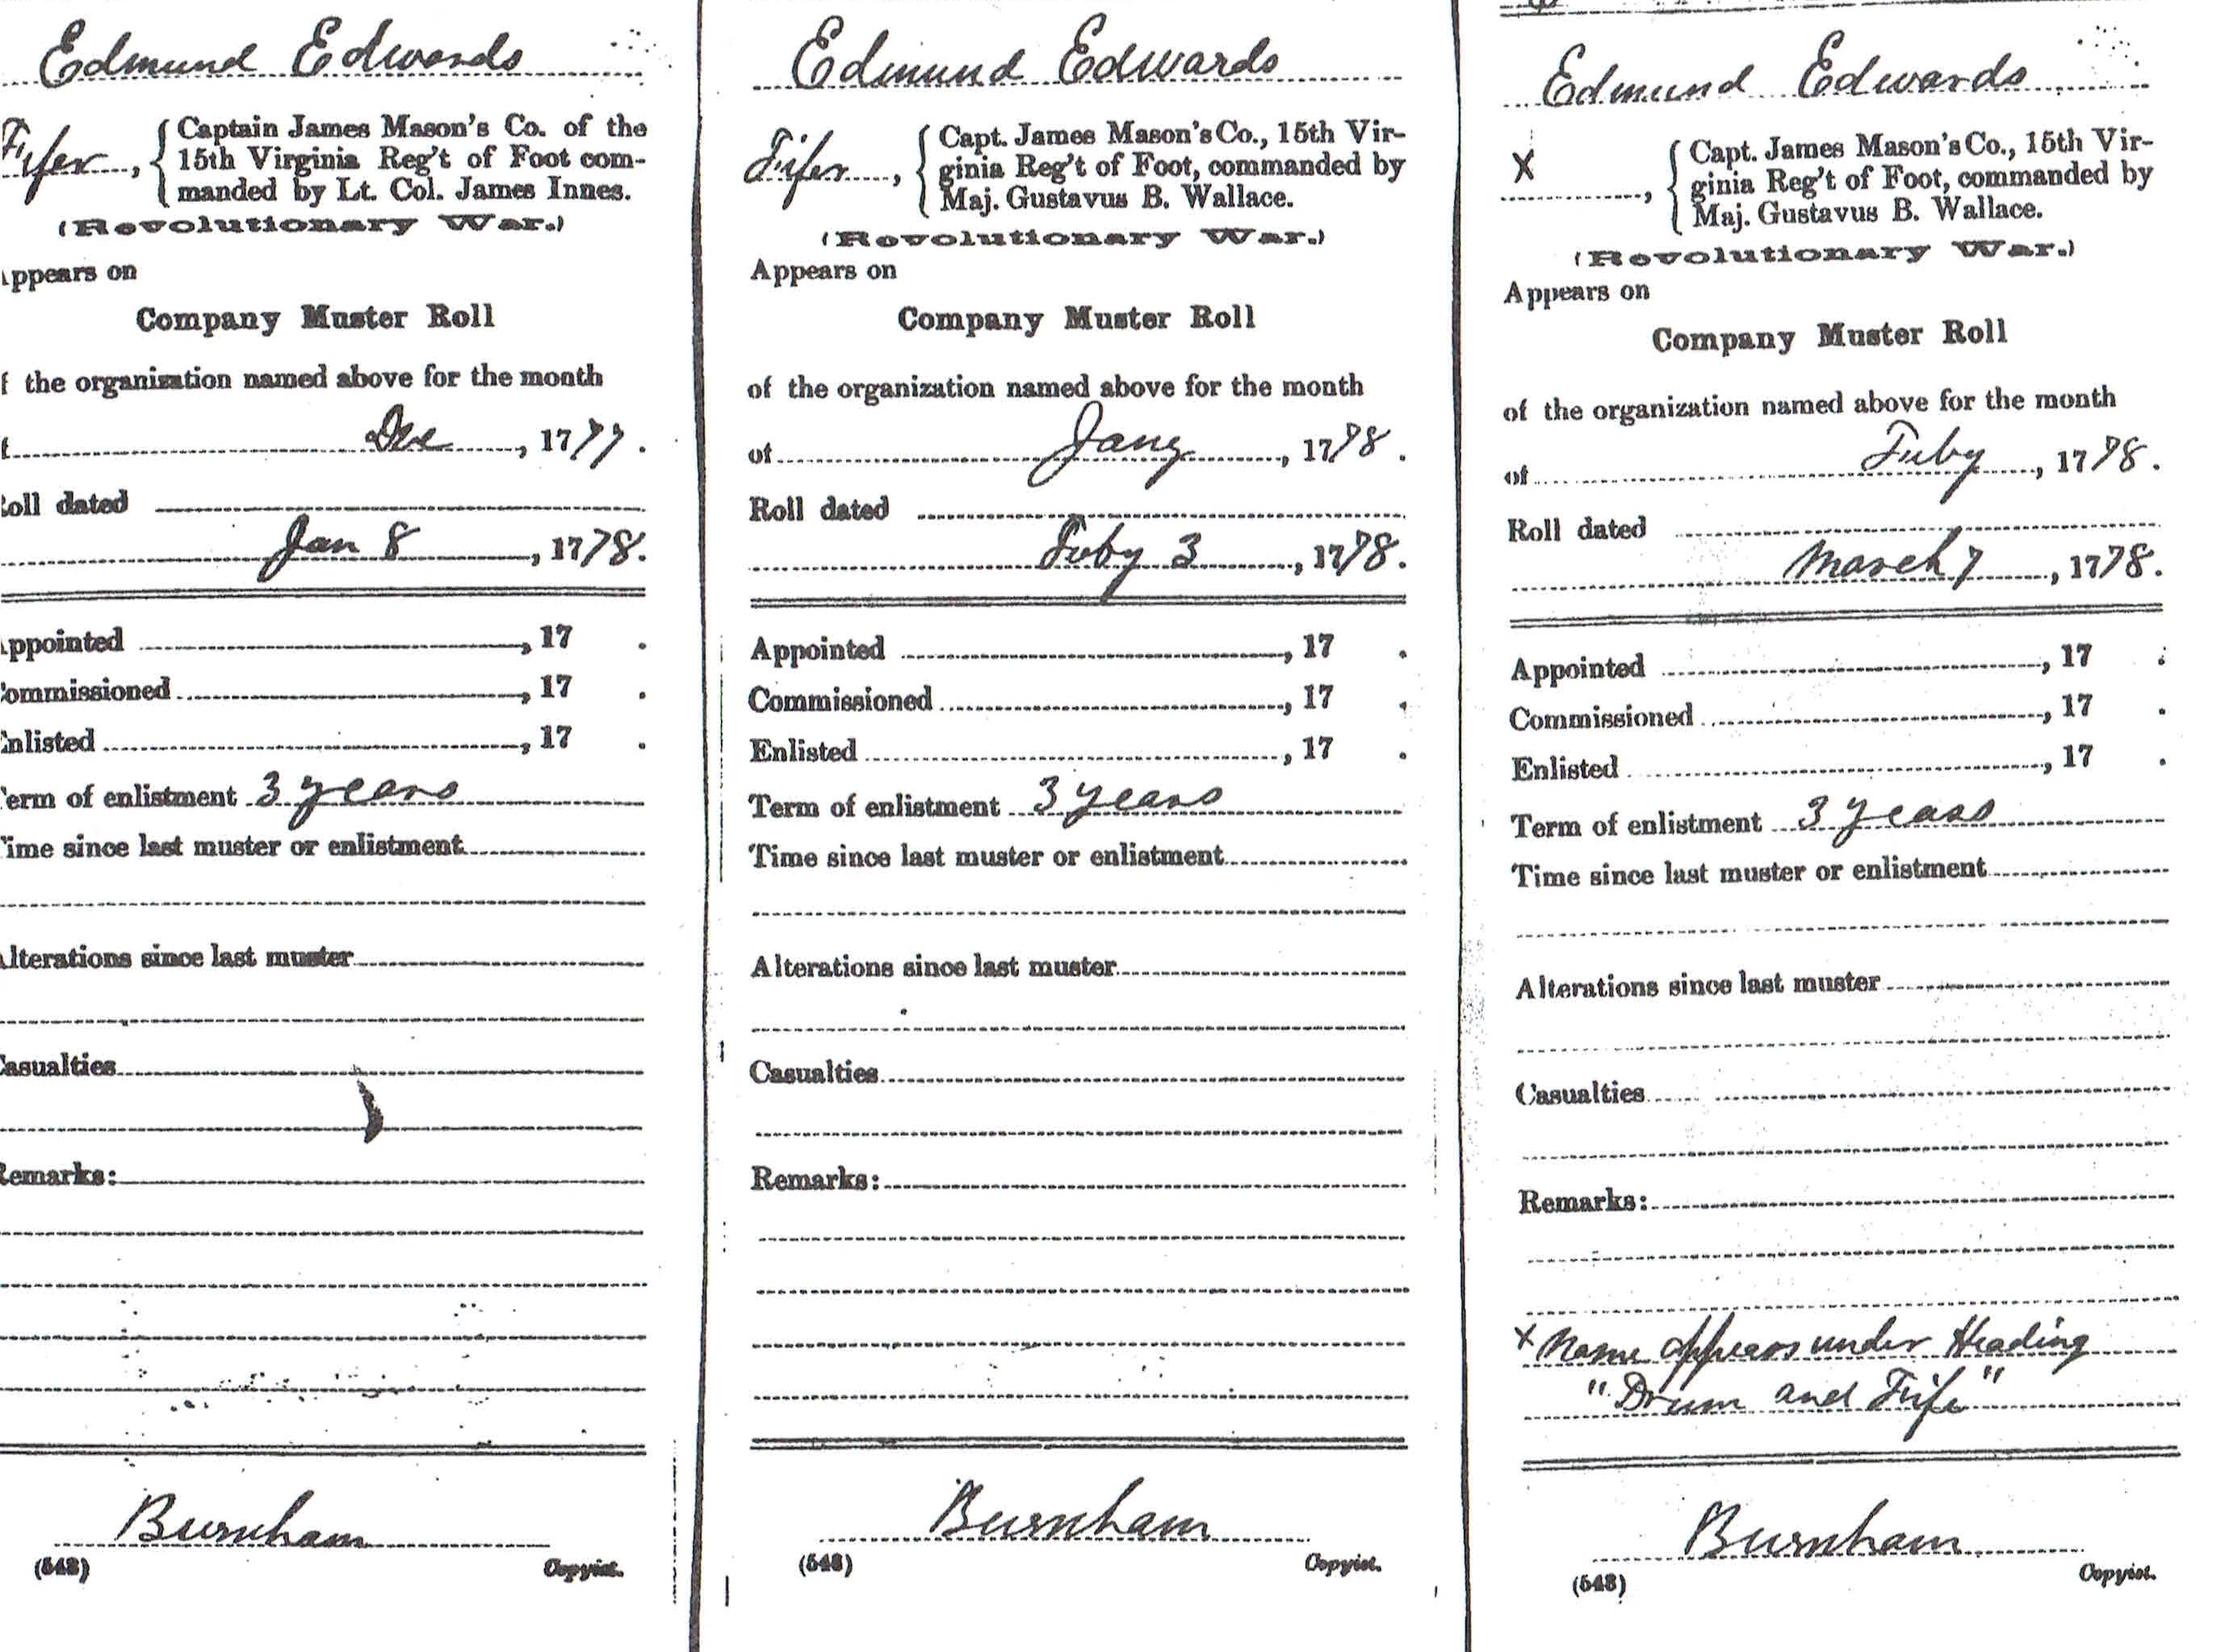 Edmund Edwards
Fifer, { Captain James Mason's Co. of the
15th Virginia Reg't of Foot com-
manded by Lt. Col. James Innes.
(Revolutionary War.)
ppears on
Company Muster Roll
f the organization named above for the month
f Dec, 1777.
oll dated
Jan 8, 1778.
ppointed , 17 .
ommissioned , 17 .
nlisted , 17 .
erm of enlistment 3 years
ime since last muster or enlistment
lterations since last muster
asualties
emarks:
Burnham
(543) Copyist.
Edmund Edwards
Fifer, { Capt. James Mason's Co., 15th Vir-
ginia Reg't of Foot, commanded by
Maj. Gustavus B. Wallace.
(Revolutionary War.)
Appears on
Company Muster Roll
of the organization named above for the month
of Jany, 1778.
Roll dated
Feby 3, 1778.
Appointed , 17 .
Commissioned , 17 .
Enlisted , 17 .
Term of enlistment 3 years
Time since last muster or enlistment
Alterations since last muster
Casualties
Remarks:
Burnham
(543) Copyist.
Edmund Edwards
X, { Capt. James Mason's Co., 15th Vir-
ginia Reg't of Foot, commanded by
Maj. Gustavus B. Wallace.
(Revolutionary War.)
Appears on
Company Muster Roll
of the organization named above for the month
of Feby, 1778.
Roll dated
March 7, 1778.
Appointed , 17 .
Commissioned , 17 .
Enlisted , 17 .
Term of enlistment 3 years
Time since last muster or enlistment
Alterations since last muster
Casualties
Remarks:
x Name appears under Heading
"Drum and Fife"
Burnham
(543) Copyist.